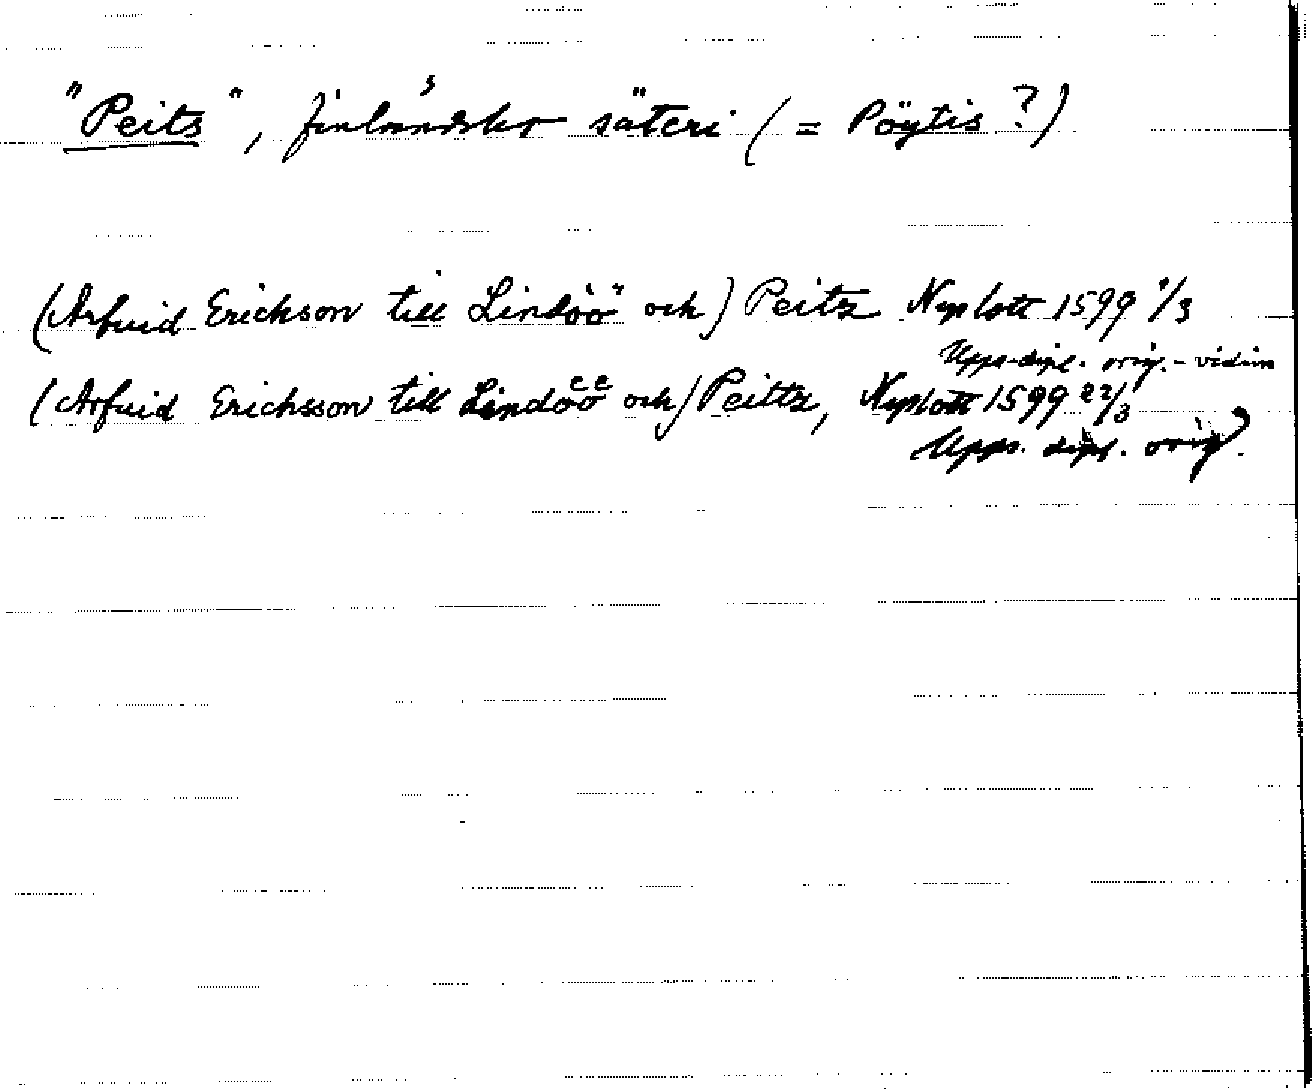 "Peits", finländskt säteri (= Pöytis?)
(Arfuid Erichson till Lindöö och) Peitz Nyslott 1599 1/3
Upps. dipl. orig. - vidim
(Arfuid Erichsson till Lindöö och) Peittz, Nyslott 1599 22/3
Upps. dipl. orig.